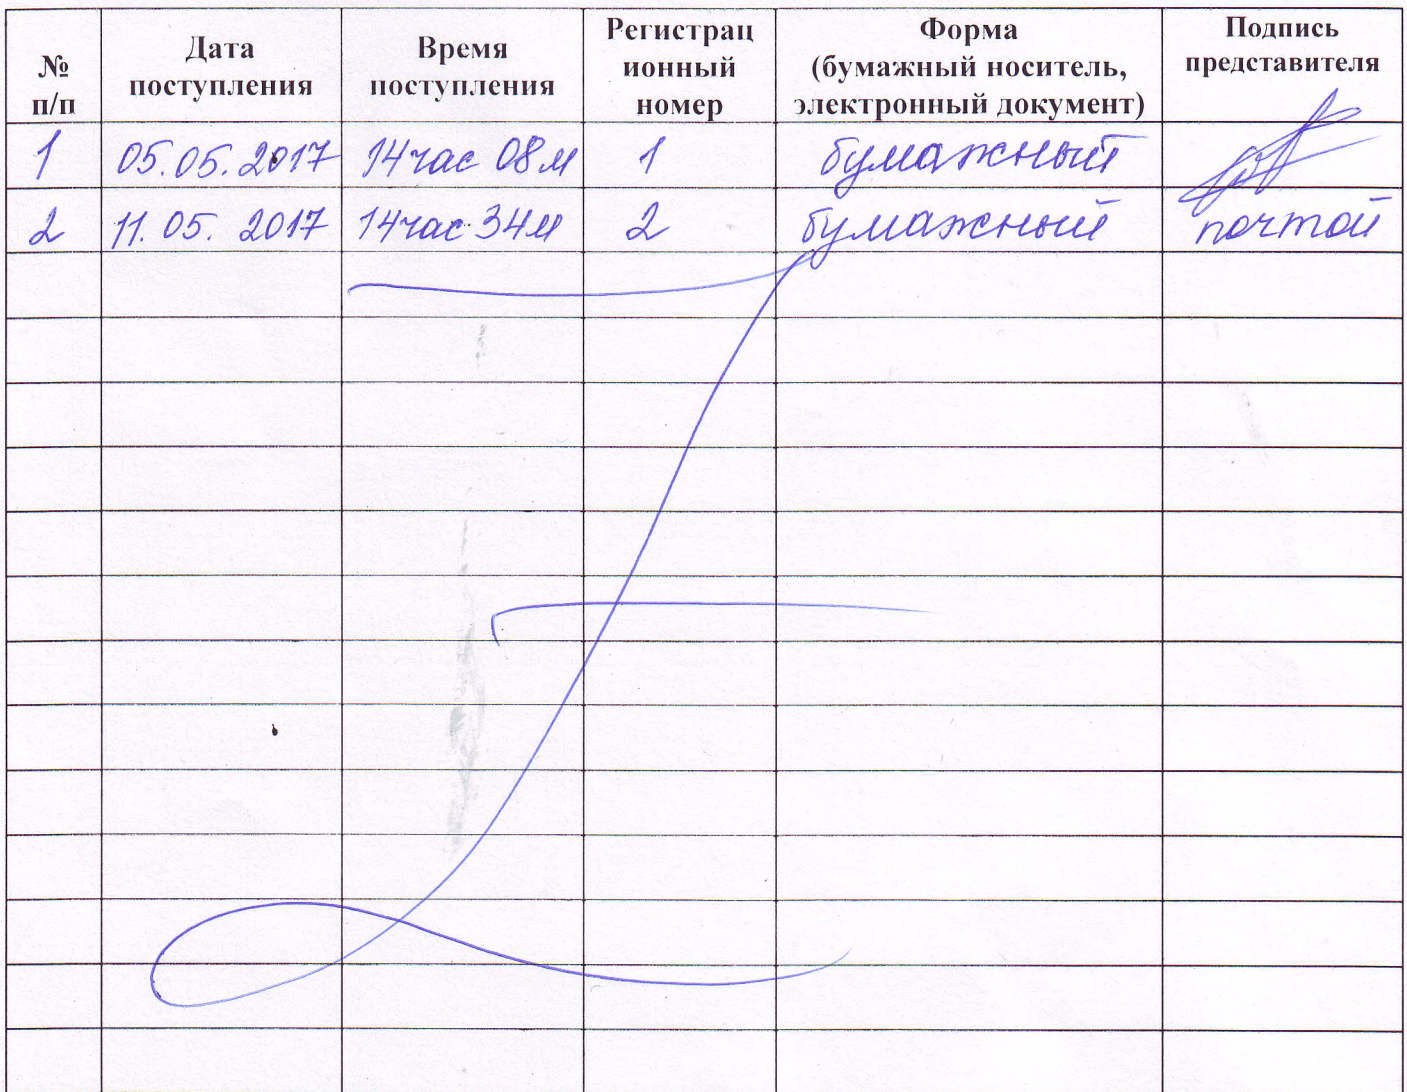 № п/п
Дата поступления
Время поступления
Регистрац ионный номер
Форма (бумажный носитель, электронный документ)
Подпись представителя
1 05.05.2017 14час 08м 1 бумажный
2 11.05.2017 14час 34м 2 бумажный почтой